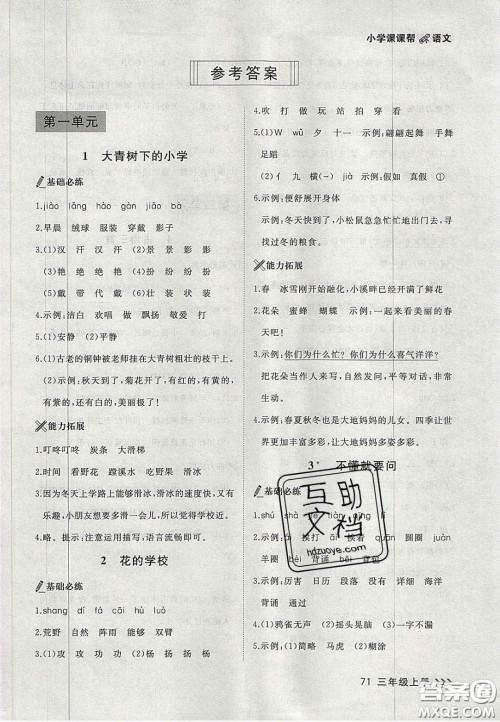 小学课课帮 语文
参考答案
第一单元
1 大青树下的小学
基础必练
1.jiāo lǎng hào jiào bà
2.早晨 绒球 服装 穿戴 影子
3.(1)汉 汗 汗 (2)景 景 影 影
(3)艳 绝 绝 艳 (4)扮 纷 纷 份
(5)戴 带 代 戴 (6)状 装 装 状
4.示例:欢唱 做 飘扬 敬爱 大
5.(1)安静 (2)平静
6.(1)古老的铜钟被老师挂在大青树粗壮的枝干上。
(2)示例:秋天到了,菊花开了,有红的,有黄的,有紫的,美丽极了。
能力拓展
1.叮咚叮咚 炭条 大滑梯
2.时间 看野花 蹚溪水 吃野果 滑冰
3.因为冬天上学路上能够滑冰,滑冰的速度快,又有乐趣,小朋友想要多滑一会儿,所以觉得学校近。
4.略。提示:注意运用描写,语言流畅即可。
2 花的学校
基础必练
1.shang dí fā cāi hù luò
2.荒野 自然 阵雨 能够 双臂
3.(1)攻 攻 功 功 (2)假 假 假 假
4.吹 打 做 玩 站 拍 穿 看
5.(1)W wǔ 夕 十一 示例:翩翩起舞 手舞足蹈
(2)亻 九 横(一) 示例:假如 真假 ①
6.示例:便舒展开身体
示例:冬天快到了,小松鼠急急忙忙地出门了,去寻找过冬的粮食。
能力拓展
1.春 冰雪刚开始融化,小溪畔已经开满了鲜花
2.花朵 蜜蜂 蝴蝶 示例:一起来看美丽的春天吧!
3.示例:你们为什么忙?你们为什么喜气洋洋?
把花朵当作人来写,亲切自然,平等对话,非常生动。
4.示例:春夏秋冬也是大地妈妈的儿女。四季让世界更加丰富多彩,让大地妈妈多姿多彩。
3 不懂就要问
基础必练
圈圈 圆圆
背 背诵
厉害 日历 段落 清楚 照例
背诵 通过
4.(1)鸦雀无声 (2)摇头晃脑 (3)一字不漏
5.示例:(1)简略 马虎 (2)糊涂
互助文档
hdzuoye.com
71 三年级上册
答案圈
MXQE.COM